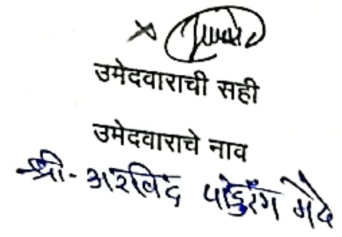 उमेदवाराची सही
उमेदवाराचे नाव
श्री- अरविंद पांडुरंग मैदे